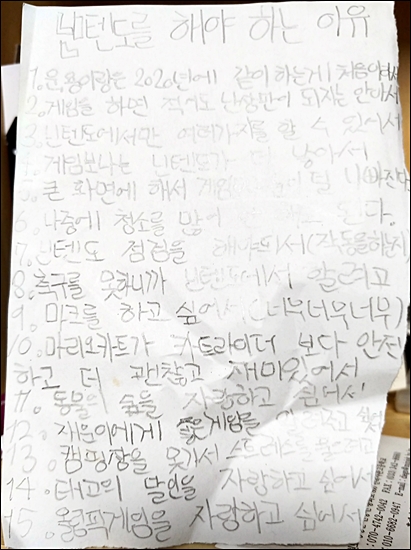 닌텐도를 해야 하는 이유
1. 은,용이랑은 2020년에 같이 하는게 처음이여서
2. 게임을 하면 적어도 난장판이 되지는 안아서
3. 닌텐도에서만 여러가지를 할 수 있어서
게임보다는 닌텐도가 더 낳아서
5. 큰 화면에 해서 게임 덜 나빠진다
6. 나중에 청소를 많이 된다.
7. 닌텐도 점검을 해야되서(작동을 하는지)
8. 축구를 못하니까 닌텐도에서 할려고
9. 마크를 하고 싶어서(너무너무너무)
10. 마리오카트가 카트라이더 보다 안전
하고 더 괜찮고 재미있어서
11. 동물의 숲을 자랑하고 싶어서
12. 재운이에게 게임을 주고 싶어서
13. 캠핑장을 못가서 스트레스를 풀고
14. 태고의 달인을 자랑하고 싶어서
15. 올림픽게임을 자랑하고 싶어서